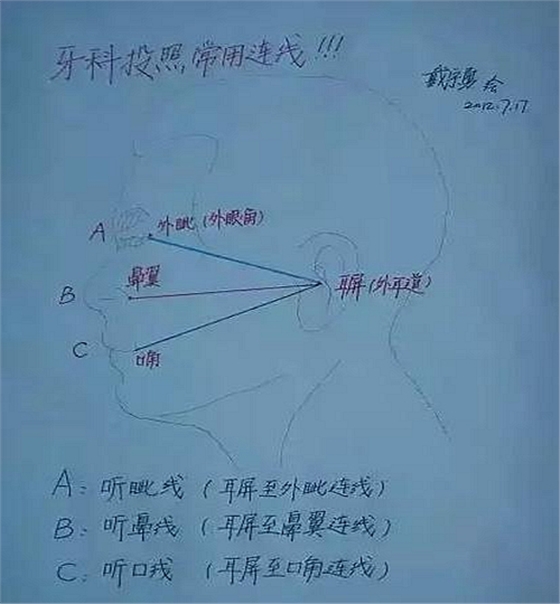 牙科投照常用连线!!!
绘
2012.7.17
A 外眦(外眼角)
鼻翼
B
耳屏(外耳道)
C
口角
A: 听眦线 (耳屏至外眦连线)
B: 听鼻线 (耳屏至鼻翼连线)
C: 听口线 (耳屏至口角连线)